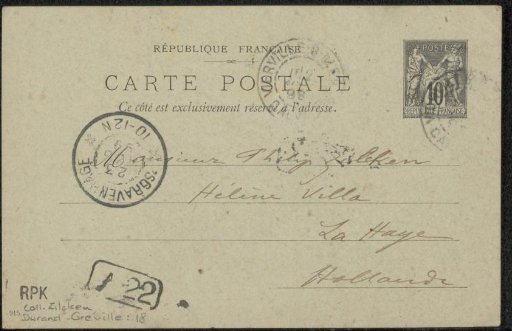 RÉPUBLIQUE FRANÇAISE
CARTE POSTALE
Ce côté est exclusivement réservé à l'adresse.
POSTE
10
'SGRAVENHAGE
10-12N
23
Monsieur Philip Zilcken
Hélène Villa
La Haye
Hollande
22
RPK
Coll. Zilcken
Durand-Gréville: 18